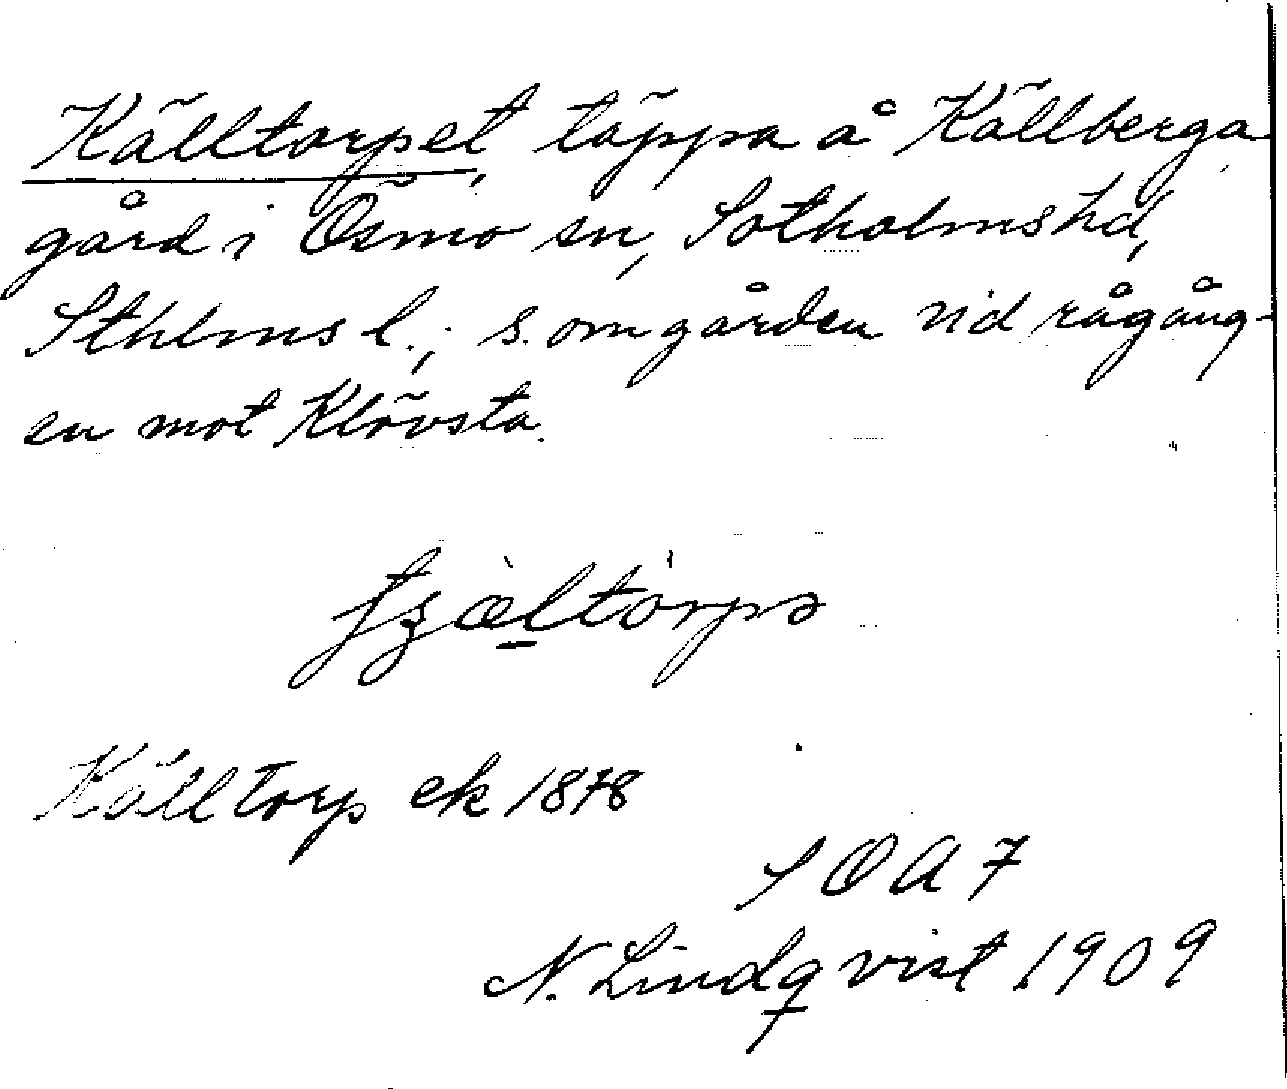 Källtorpet, täppa å Källberga
gård i Ösmo sn, Sotholms hd,
Sthlms l.; s. om gården vid rågång-
en mot Klövsta.
Källtorp ek 1878
SOA 7
N. Lindqvist 1909